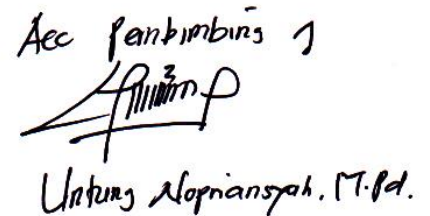 Acc Pembimbing 1
Untung Nopriansyah. M.Pd.